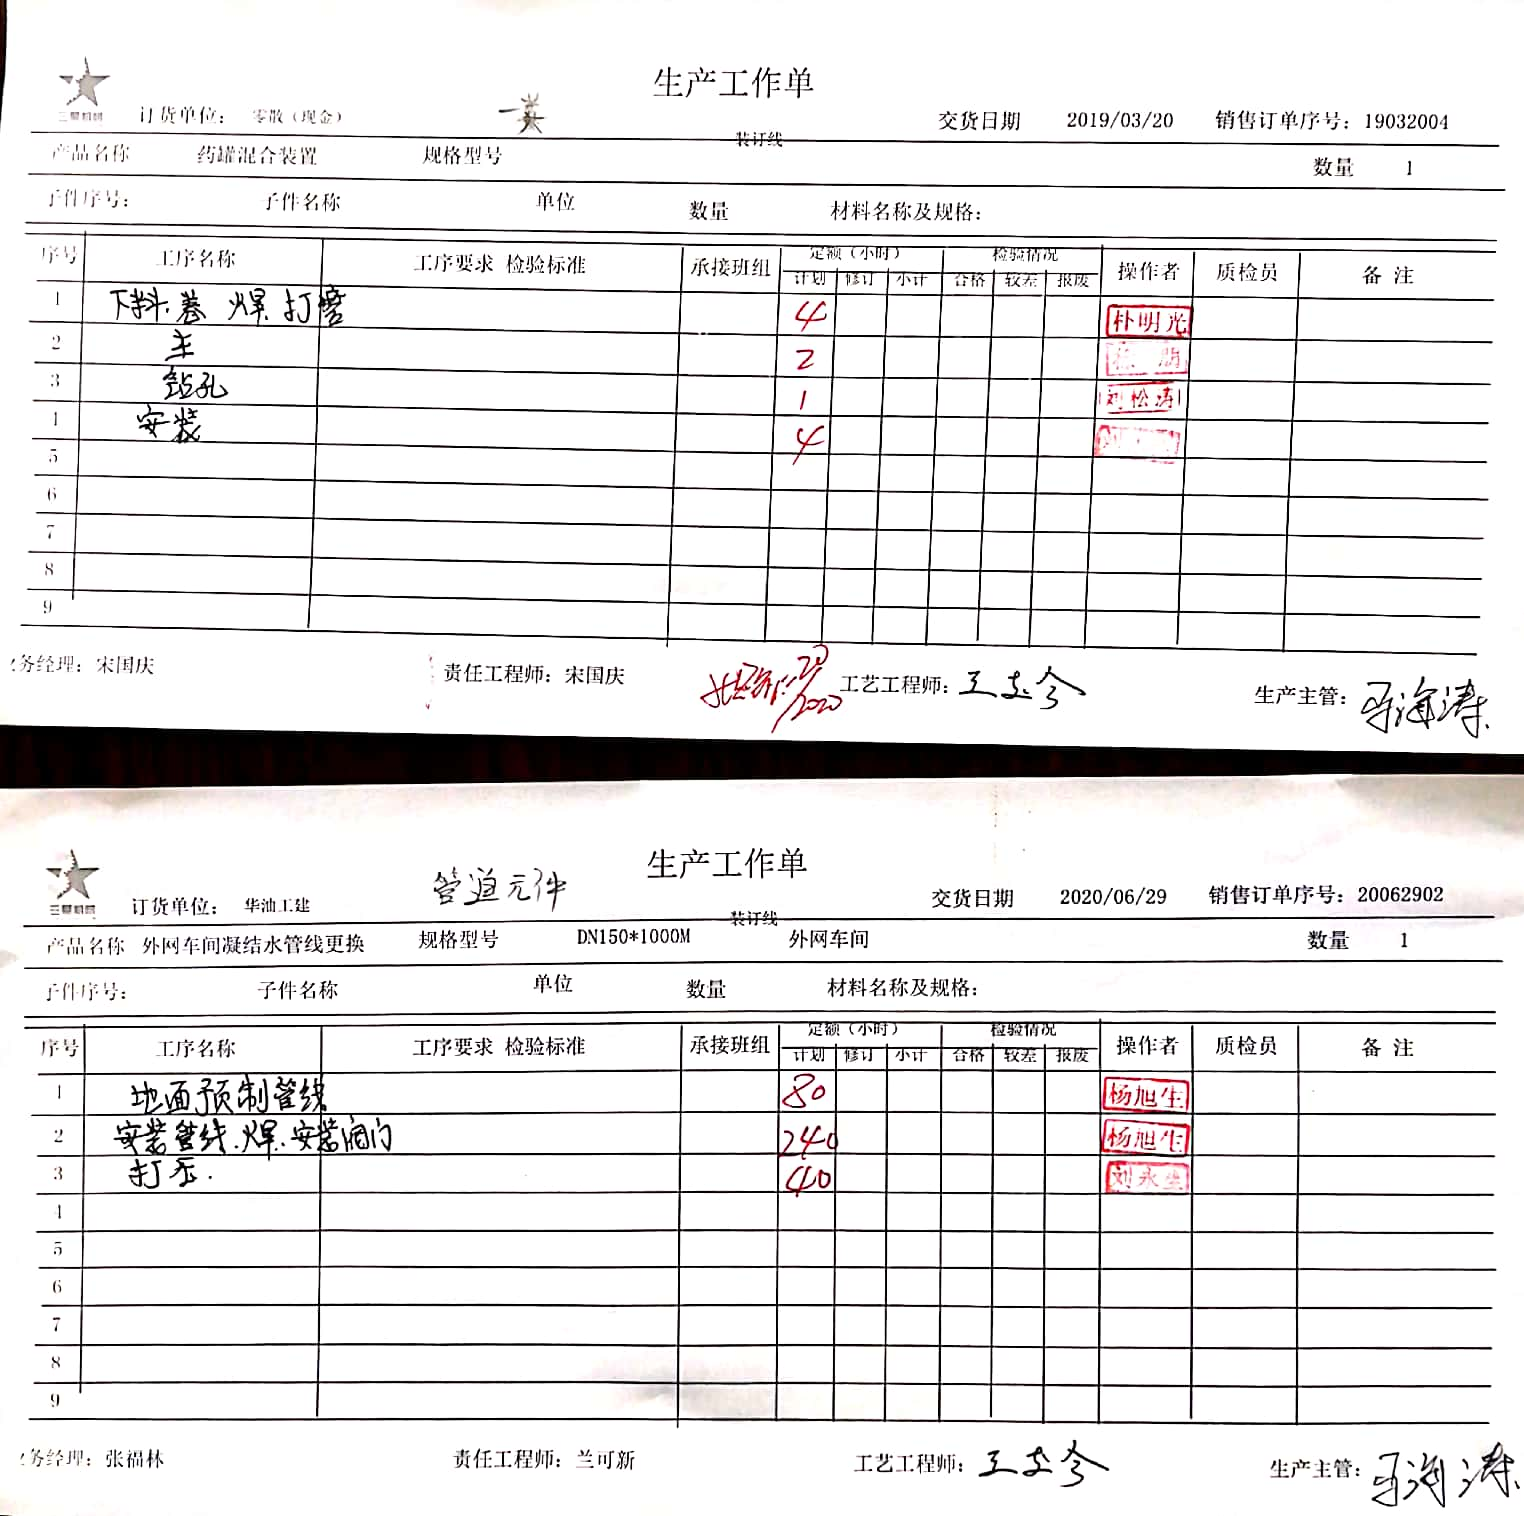 生产工作单
三星机械 订货单位： 零散（现金） 交货日期 2019/03/20 销售订单序号：19032004
装订线
产品名称 药罐混合装置 规格型号 数量 1
子件序号： 子件名称 单位 数量 材料名称及规格：
序号 工序名称 工序要求 检验标准 承接班组 定额（小时） 检验情况 操作者 质检员 备 注
计划 修订 小计 合格 较差 报废
1 下料.卷 焊 打磨 4 朴明光
2 车 2
3 钻孔 1 刘松涛
4 安装 4
5
6
7
8
9
业务经理：宋国庆 责任工程师：宋国庆 2020 工艺工程师： 生产主管：
生产工作单
管道元件
三星机械 订货单位： 华油工建 交货日期 2020/06/29 销售订单序号：20062902
装订线
产品名称 外网车间凝结水管线更换 规格型号 DN150*1000M 外网车间 数量 1
子件序号： 子件名称 单位 数量 材料名称及规格：
序号 工序名称 工序要求 检验标准 承接班组 定额（小时） 检验情况 操作者 质检员 备 注
计划 修订 小计 合格 较差 报废
1 地面预制管线 80 杨旭生
2 安装管线.焊.安装阀门 240 杨旭生
3 打压. 40 刘永生
4
5
6
7
8
9
业务经理：张福林 责任工程师：兰可新 工艺工程师： 生产主管：